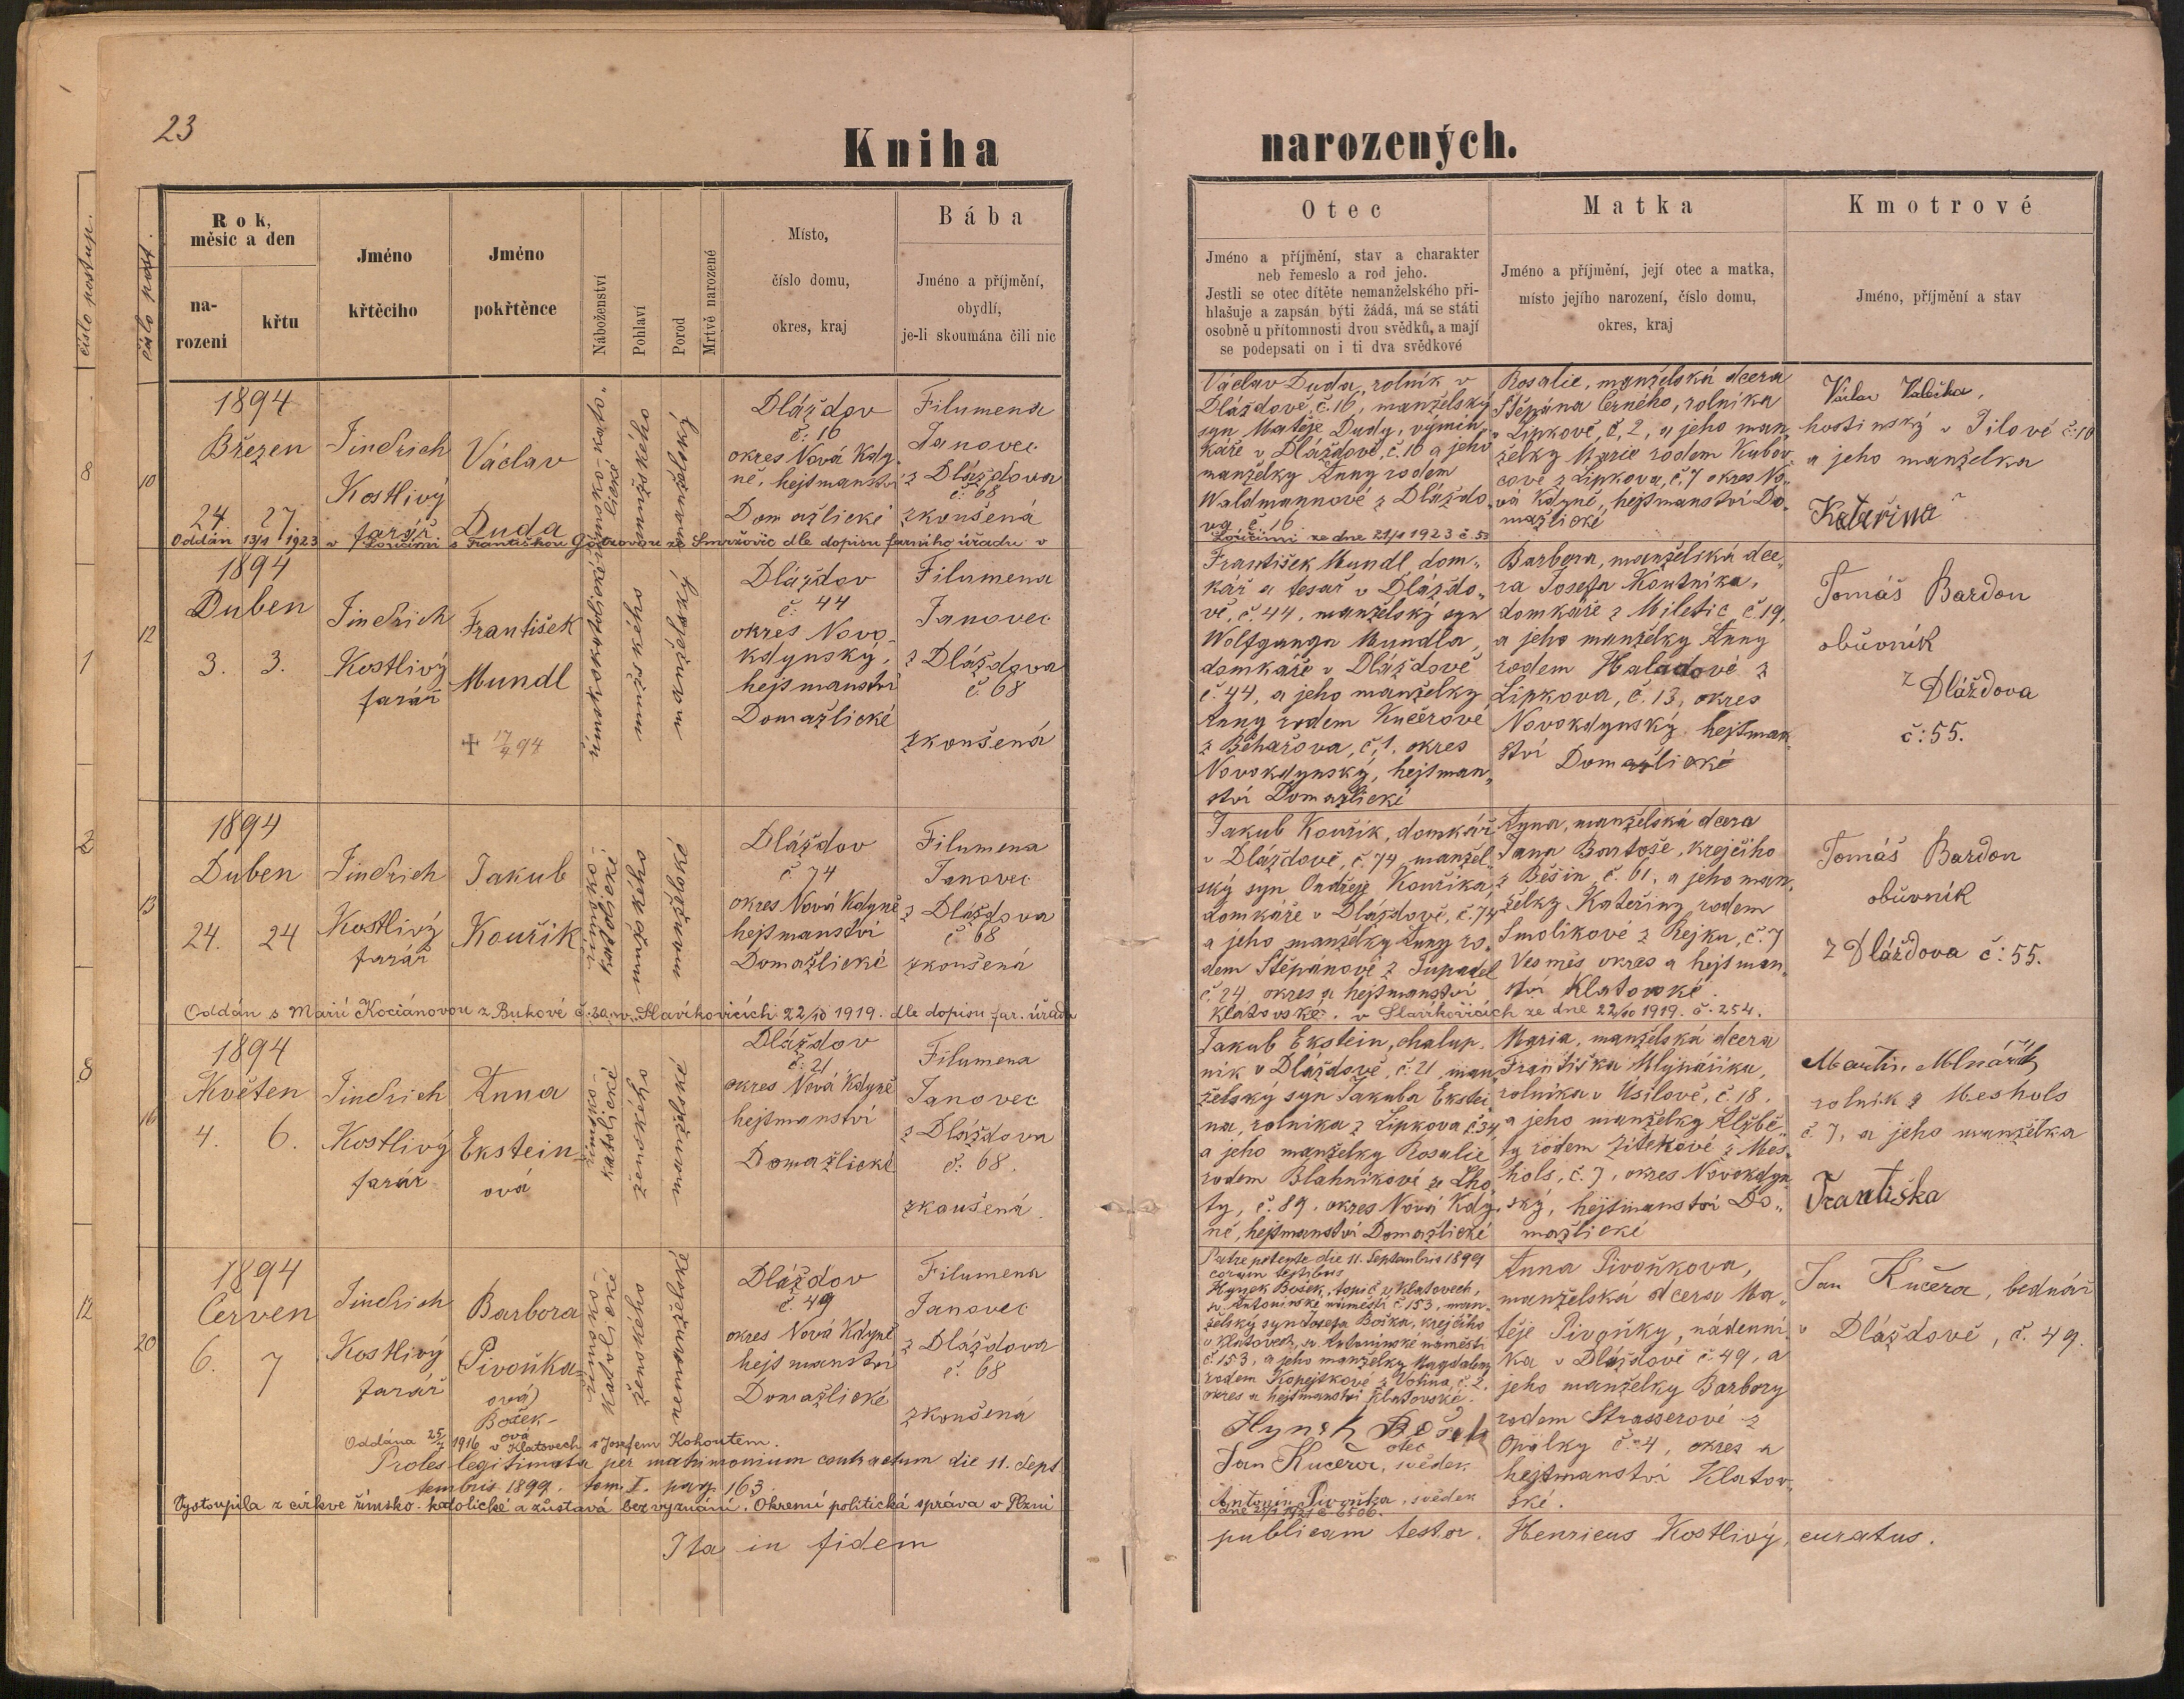 23
Kniha narozených.
číslo postup.
číslo post.
Rok, měsíc a den
narození
křtu
Jméno křtěcího
Jméno pokřtěnce
Náboženství
Pohlaví
Porod
Mrtvě narozené
Místo,
číslo domu,
okres, kraj
Bába
Jméno a příjmění,
obydlí,
je-li skoumána čili nic
Otec
Jméno a příjmění, stav a charakter
neb řemeslo a rod jeho.
Jestli se otec dítěte nemanželského při-
hlašuje a zapsán býti žádá, má se státi
osobně u přítomnosti dvou svědků, a mají
se podepsati on i ti dva svědkové
Matka
Jméno a příjmění, její otec a matka,
místo jejího narození, číslo domu,
okres, kraj
Kmotrové
Jméno, příjmění a stav
8
10
1894
Březen
24. 27.
Jindřich
Kostlivý
farář
Václav
Duda
římsko-kato-
lické
mužského
manželský
Dláždov
č: 16
okres Nová Kdy-
ně, hejtmanství
Domažlické
Filumena
Janovec
z Dláždova
č. 68
zkoušená
Václav Duda, rolník v
Dláždově, č. 16, manželský
syn Matěje Dudy, výmin,
káře v Dláždově, č. 16 a jeho
manželky Anny rodem
Waldmannové z Dláždo-
va, č. 16
Rosalie, manželská dcera
Štěpána Černého, rolníka
v Lipkově, č. 2, a jeho man,
želky Marie rodem Kubov-
cové z Lipkova, č. 7 okres No-
vá Kdyně, hejtmanství Do-
mažlické
Václav Valeška,
hostinský v Pilové č. 10
a jeho manželka
Kateřina
Oddán 13/1 1923 v Loučimi s Františkou ze Smržovic dle dopisu farního úřadu v
Loučimi ze dne 21/1 1923 č. 53
1
12
1894
Duben
3. 3.
Jindřich
Kostlivý
farář
František
Mundl
+ 17/4 94
římskokatolické
mužského
manželský
Dláždov
č: 44
okres Novo-
kdynský,
hejtmanství
Domažlické
Filumena
Janovec
z Dláždova
č. 68
zkoušená
František Mundl, dom-
kář a tesař v Dláždo-
vě, č. 44, manželský syn
Wolfganga Mundla,
domkáře v Dláždově
č. 44, a jeho manželky
Anny rodem Kučerové
z Běhařova, č. 1. okres
Novokdynský, hejtman-
ství Domažlické
Barbora, manželská dce-
ra Josefa Koutníka,
domkáře z Miletic č 19,
a jeho manželky Anny
rodem Haladové z
Lipkova, č. 13, okres
Novokdynský hejtman-
ství Domažlické
Tomáš Bardon
obuvník
z Dláždova
č: 55.
2
13
1894
Duben
24. 24
Jindřich
Kostlivý
farář
Jakub
Kouřík
římsko-
katolické
mužského
manželské
Dláždov
č 74
okres Nová Kdyně
hejtmanství
Domažlické
Filumena
Janovec
z Dláždova
č. 68
zkoušená
Jakub Kouřík, domkář
v Dláždově, č. 74, manžel-
ský syn Ondřeje Kouříka,
domkáře v Dláždově, č. 74
a jeho manželky Anny ro-
dem Štěpánové z Tupadel
č. 24, okres a hejtmanství
Klatovské.
Anna, manželská dcera
Jana Bartoše, krejčího
z Běšin, č. 61, a jeho man-
želky Kateřiny rodem
Smolíkové z Rejku, č. 7
Vesměs okres a hejtman-
ství Klatovské.
Tomáš Bardon
obuvník
z Dláždova č: 55.
Oddán s Marií Kociánovou z Bukové č. 20, v Slavíkovicích 22/10 1919. dle dopisu far. úřadu
v Slavíkovicích ze dne 22/10 1919. č. 254.
8
16
1894
Květen
4. 6.
Jindřich
Kostlivý
farář
Anna
Ekstein-
ová
římsko-
katolické
ženského
manželské
Dláždov
č: 21
okres Nová Kdyně
hejtmanství
Domažlické
Filumena
Janovec
z Dláždova
č: 68.
zkoušená.
Jakub Ekstein, chalup-
ník v Dláždově, č. 21 man-
želský syn Jakuba Ekstei-
na, rolníka z Lipkova č. 34,
a jeho manželky Rosalie
rodem Blahníkové ze Lho-
ty, č. 89. okres Nová Kdy-
ně, hejtmanství Domažlické
Maria, manželská dcera
Františka Mlynáříka,
rolníka v Úsilově, č. 18.
a jeho manželky Alžbě-
ty rodem Zítekové z Mes-
hols, č. 7, okres Novokdyn-
ský, hejtmanství Do-
mažlické
Martin
rolník z Meshols
č. 7, a jeho manželka
Františka
12
20
1894
Červen
6. 7
Jindřich
Kostlivý
farář
Barbora
(Pivoňka-
ová)
Bošek-
ová
římsko-
katolické
ženského
nemanželské
Dláždov
č. 49
okres Nová Kdyně
hejtmanství
Domažlické
Filumena
Janovec
z Dláždova
č. 68
zkoušená
Patre petente die 11. Septembris 1899
coram testibus
Hynek Bošek, topič v Klatovech,
v Antonínské náměstí č. 153, man-
želský syn Josefa Boška, krejčího
v Klatovech, v Antonínské náměstí
č. 153, a jeho manželky Magdaleny
rodem Kopejtkové z Votína, č. 2.
okres a hejtmanství Klatovské.
Hynek Bošek
otec
Jan Kučera, svědek
Antonín Pivoňka, svědek
Anna Pivoňkova,
manželská dcera Ma-
těje Pivoňky, nádenní-
ka v Dláždově č. 49, a
jeho manželky Barbory
rodem Strasserové z
Opálky č. 4, okres a
hejtmanství Klatov-
ské.
Jan Kučera, bednář
v Dláždově, č. 49.
Oddána 25/7 1916 v Klatovech s Josefem Kohoutem.
Proles legitimata per matrimonium contractum die 11. Sept
tembris 1899. tom. I. pag. 163.
Vystoupila z církve římsko-katolické a zůstává bez vyznání. Okresní politická správa v Plzni
Ita in fidem publicam testor. Henricus Kostlivý, curatus.